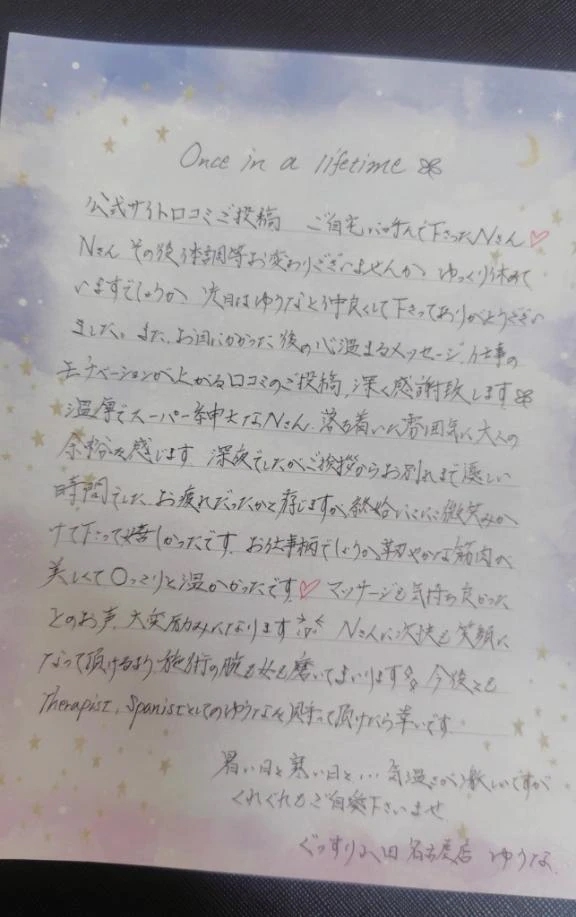 Once in a lifetime
公式サイト口コミご投稿 ご自宅に呼んで下さったNさん♡
Nさん その後体調等お変わりございませんか ゆっくり休めて
いますでしょうか 先日はゆうなと仲良くして下さってありがとうござい
ました。また、お目にかかった後の心温まるメッセージ、仕事の
モチベーションが上がる口コミのご投稿、深く感謝致します
温厚でスーパー紳士なNさん。落ち着いた雰囲気に大人の
余裕を感じます 深夜でしたがご挨拶からお別れまで優しい
時間でした お疲れだったかと存じますが終始にこにこ微笑みか
けて下さって嬉しかったです。お仕事柄でしょうか靭やかな筋肉が
美しくて〇っこりと温かかったです♡ マッサージも気持ち良かった
とのお声、大変励みになります Nさんに次回も笑顔に
なって頂けるよう施術の腕も女も磨いてまいります 今後とも
Therapist、Spanistとしてのゆうなを 頂けたら幸いです
暑い日と寒い日と... 気温さが激しいですが
くれぐれもご自愛下さいませ
ぐっすり 名古屋店 ゆうな